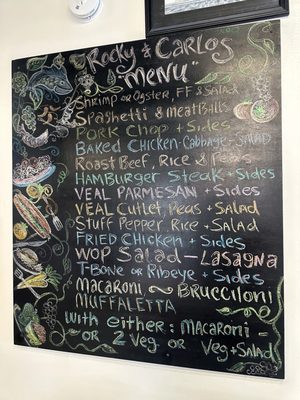 Rocky & Carlos
"Menu"
Shrimp or Oyster, FF & Salad
Spaghetti & Meatballs
Pork Chop + Sides
Baked Chicken-Cabbage-Salad
Roast Beef, Rice & Peas
Hamburger Steak + Sides
Veal Parmesan + Sides
Veal Cutlet, Peas + Salad
Stuff Pepper, Rice + Salad
Fried Chicken + Sides
Wop Salad - Lasagna
T-Bone or Ribeye + Sides
Macaroni ~ Brucciloni
Muffaletta
With either: Macaroni -
- or 2 Veg or Veg + Salad